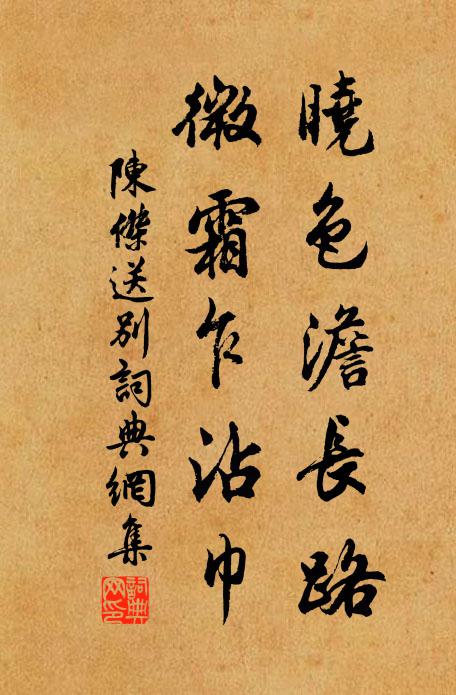 曉色澹長路
微霜乍沾巾
陳傑送別詞典網集
詞典網印